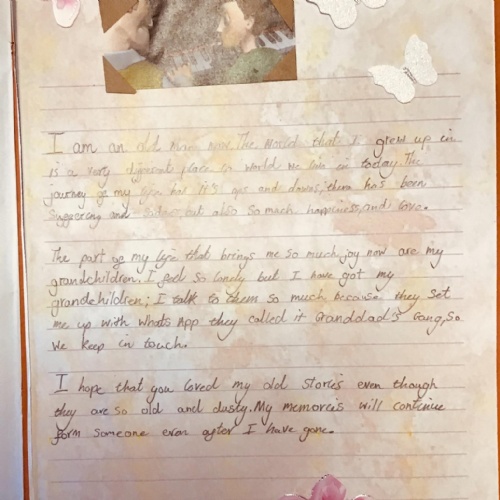 I am an old man now. The world that I grew up in
is a very different place to world we live in today. The
journey of my life has it's ups and downs, there has been
suggering and sadness but also so much happiness, and love.
The part of my life that brings me so much joy now are my
grandchildren. I feel so lonely but I have got my
grandechildren; I talk to them so much because they set
me up with WhatsApp they called it Granddad's Gang, so
we keep in touch.
I hope that you loved my old stories even though
they are so old and dusty. My memoreis will continue
form someone even after I have gone.